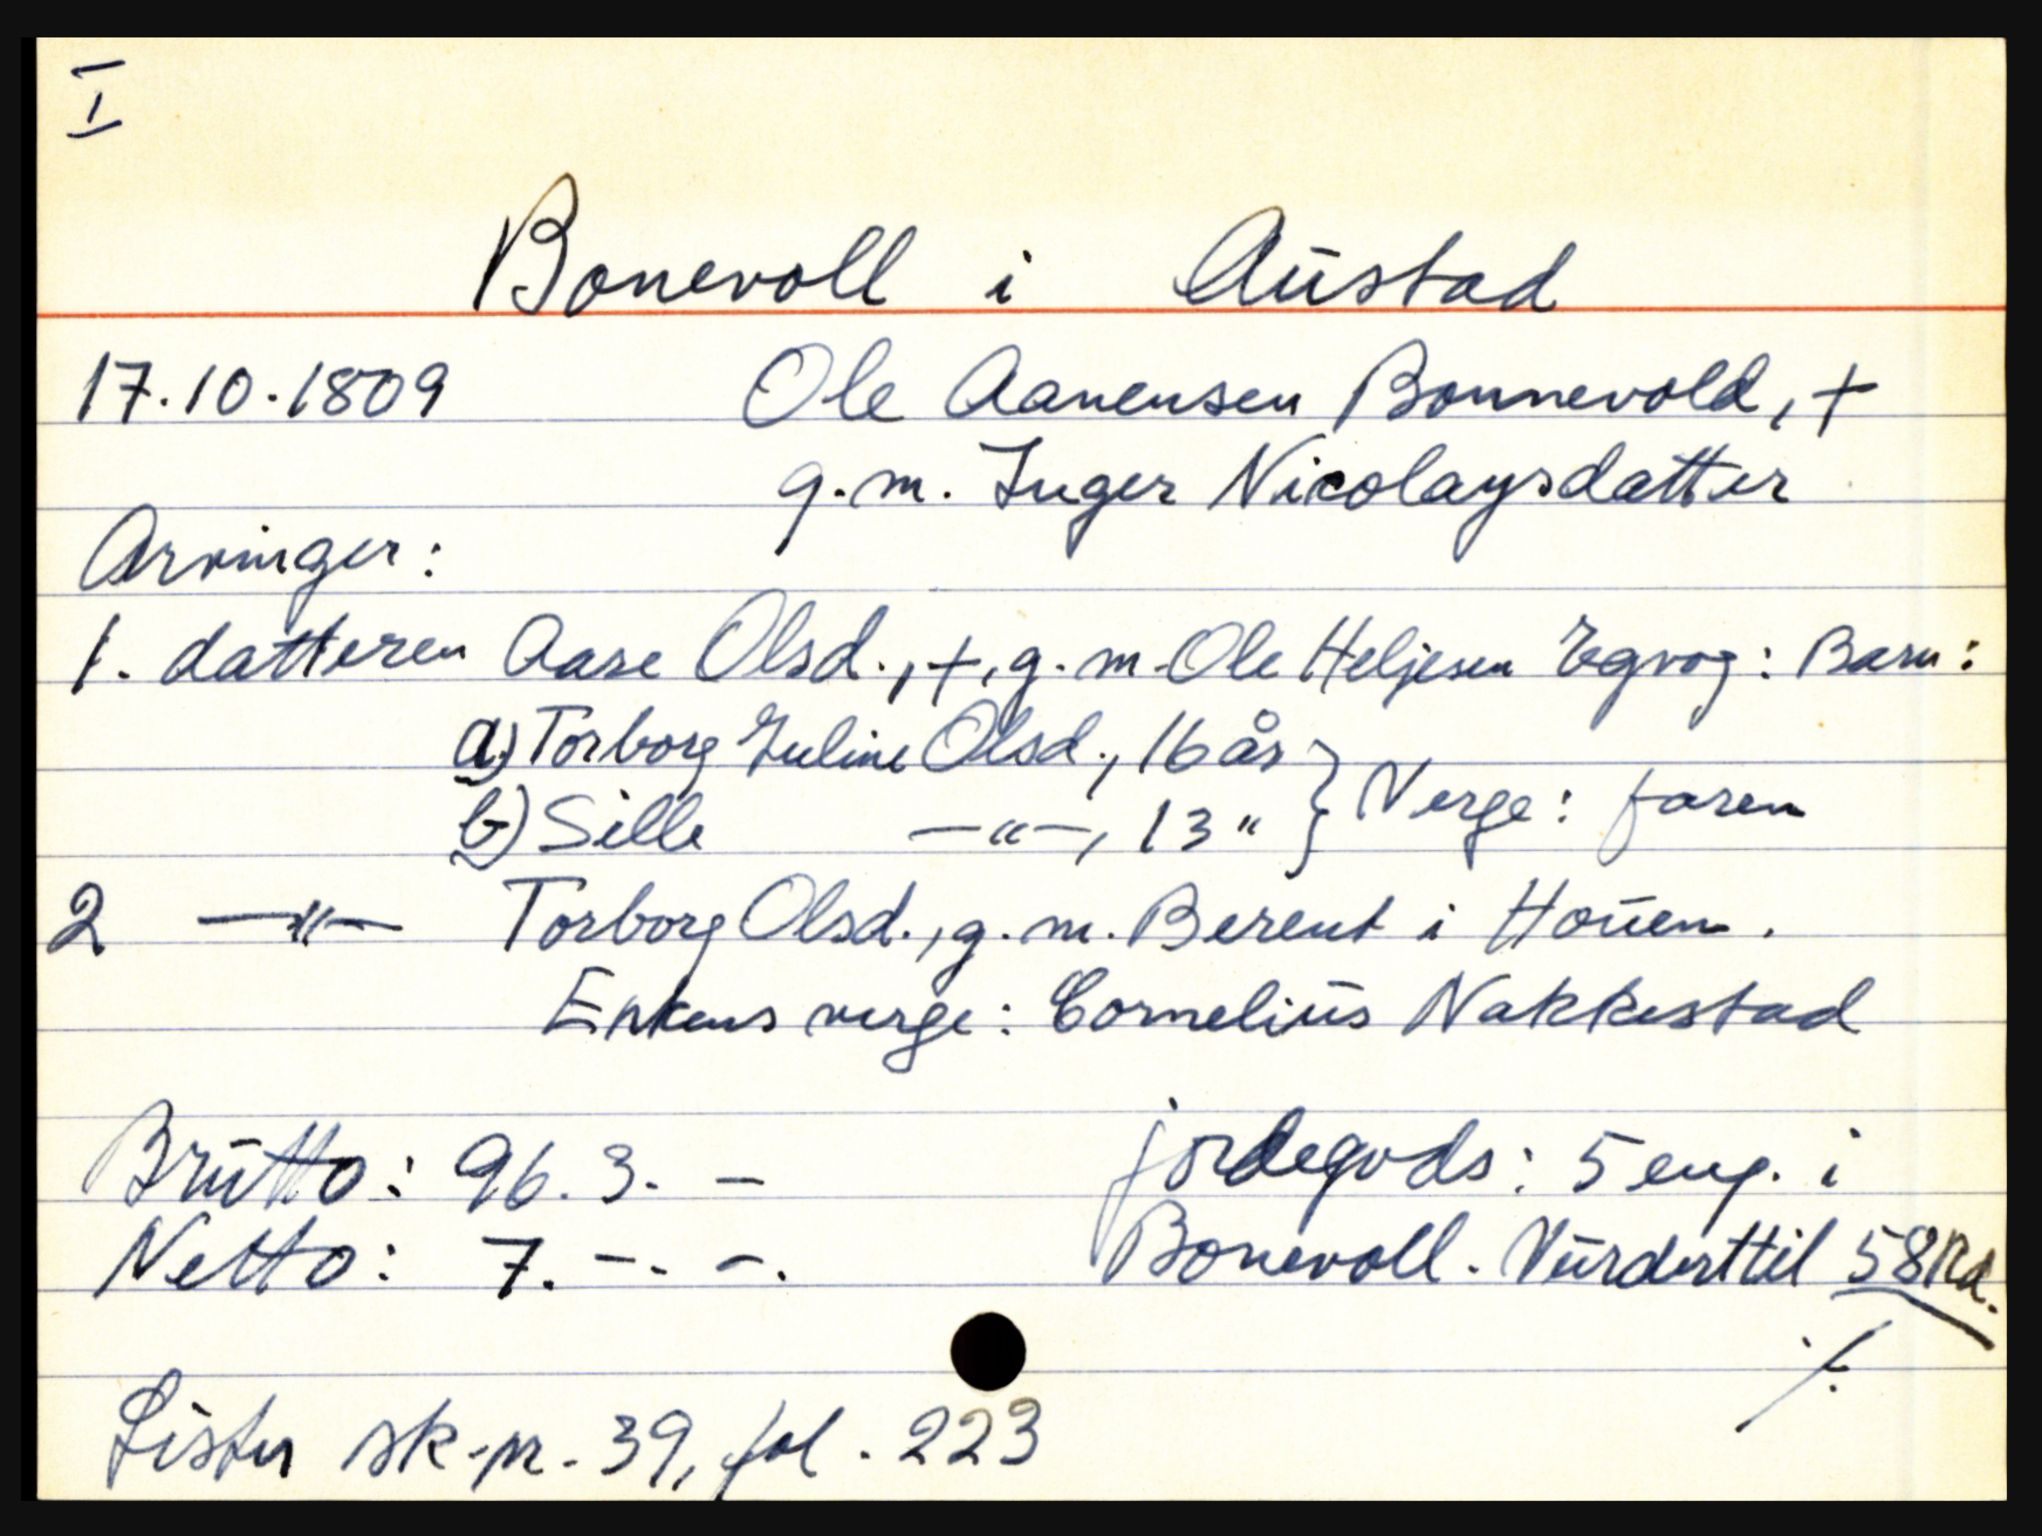 I
Bonevoll i Austad
17.10.1809 Ole Aanensen Bonnevold, +
g.m. Inger Nicolaysdatter
Arvinger:
1. datteren Aase Olsd., +, g.m. Ole Heljesen Egvog: Barn:
a) Torborg Juline Olsd., 16 år } Verge: faren
b) Sille —"—, 13 "
2 —"— Torborg Olsd., g.m. Berent i Houen.
Enkens verge: Cornelius Nakkestad
Brutto: 96. 3. – jordegods: 5 eng. i
Netto: 7. –. –. Bonevoll. Vurdert til 58 Rd.
./.
Lister sk.pr. 39, fol. 223